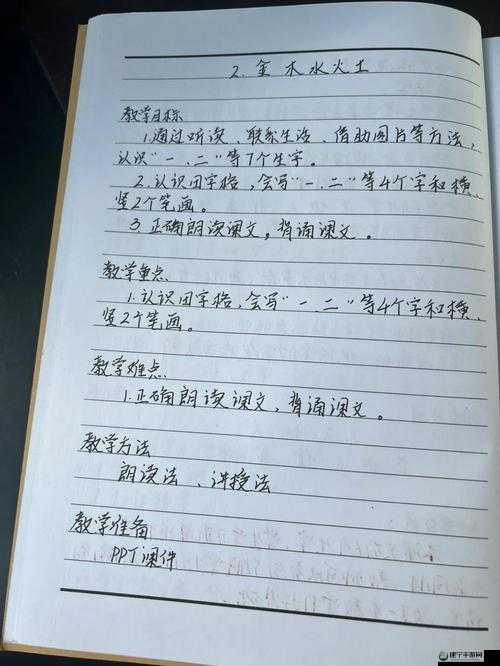 2. 金木水火土
教学目标
1.通过听读、联系生活、借助图片等方法,
认识“一、二”等7个生字。
2.认识田字格,会写“一、二”等4个字和横、
竖2个笔画。
3.正确朗读课文。背诵课文。
教学重点
1.认识田字格,会写“一、二”等4个字和横、
竖2个笔画。
教学难点
1.正确朗读课文,背诵课文。
教学方法
朗读法、讲授法
教学准备
PPT课件